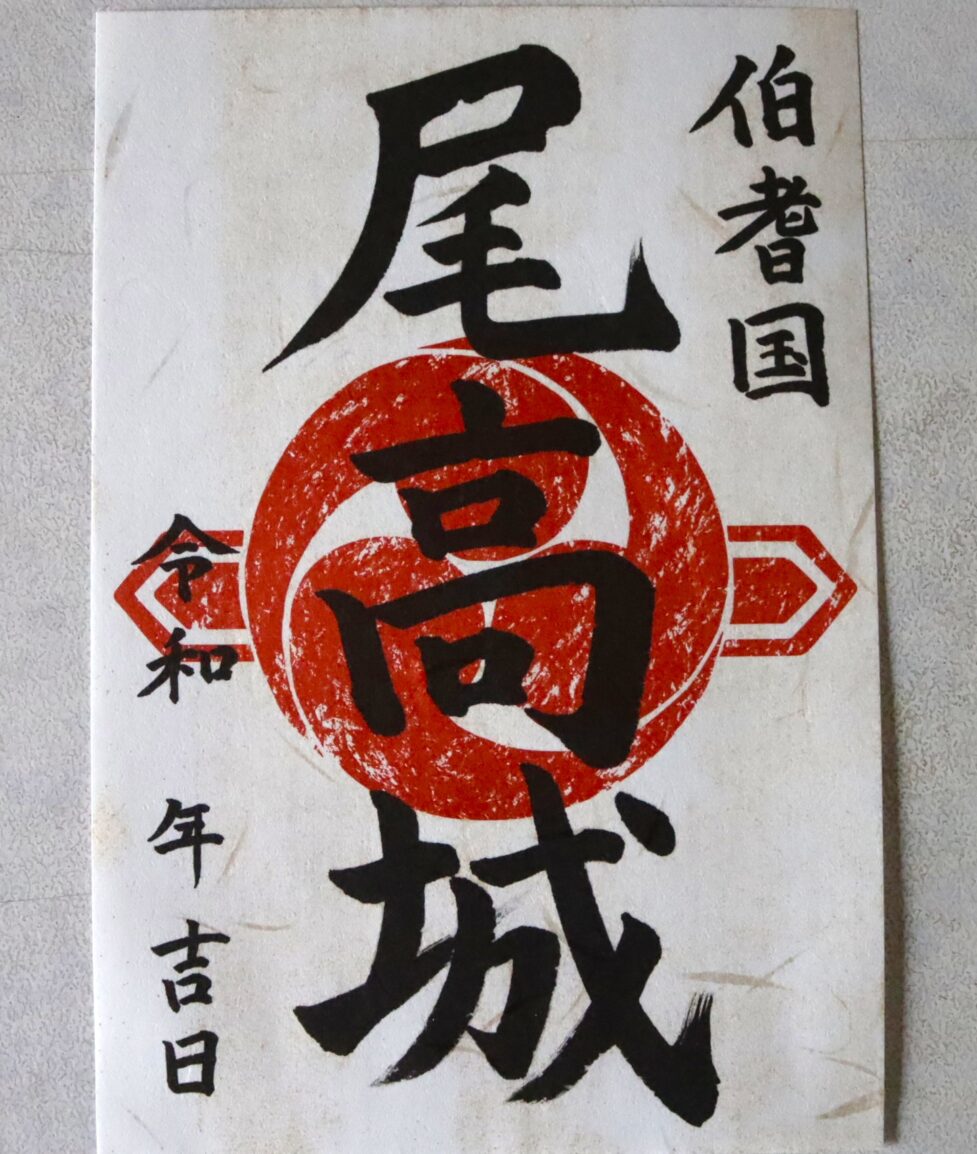 伯耆国
尾高城
令和 年 吉日